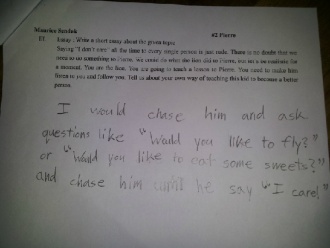 Maurice Sendak #2 Pierre
Essay: Write a short essay about the given topic
Saying "I don't care" all the time to every single person is just rude. There is no doubt that we
need to do something to Pierre. We could do what the lion did to Pierre, but on a
a moment. You are the lion. You are going to teach a lesson to Pierre. You need to make him
listen to you and follow you. Tell us about your own way of teaching this kid to become a better
person.
I would chase him and ask
questions like "Would you like to fly?"
or "Would you like to eat some sweets?"
and chase him until he say "I care!"